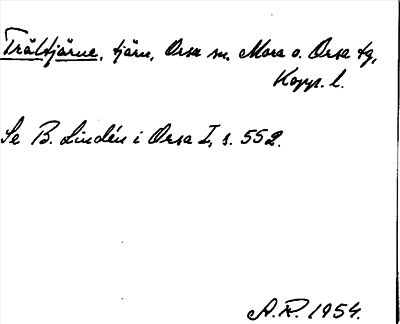 Trältjärne, tjärn, Orsa sn, Mora o. Orsa tg,
Kopp. l.
Se B. Lindén i Orsa I, s. 552.
A.R. 1954.